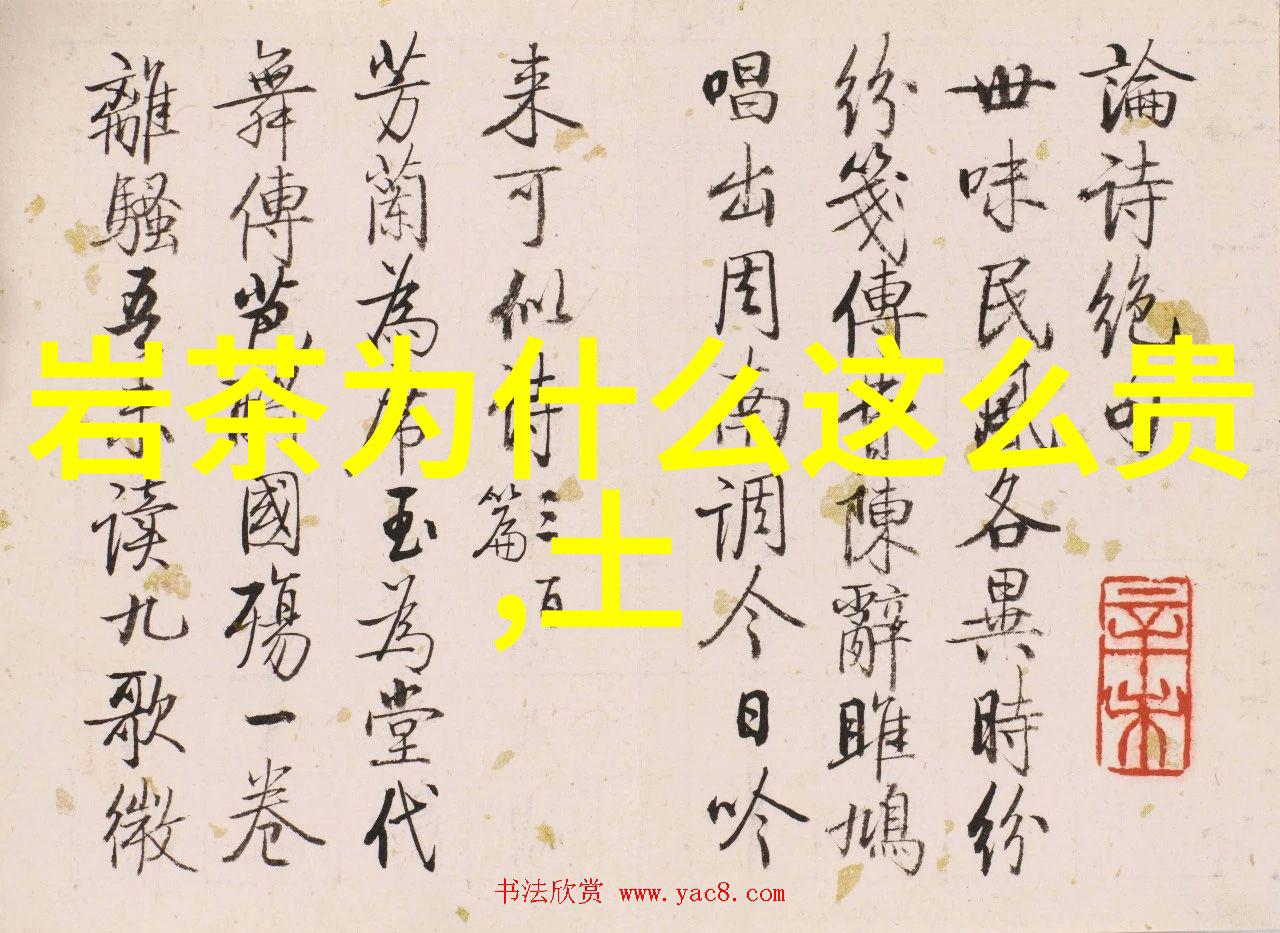 岩茶为什么这么贵
,土
論诗绝
世味民風各異時纷
纷笺傳陳辭雎鳩
唱出周南調今日吟
来可似诗三百篇
芳蘭為席玉為堂代
舞傳芭國殤一卷
離騷吾未读九歌微
辛未
书法欣赏 www.yac8.com